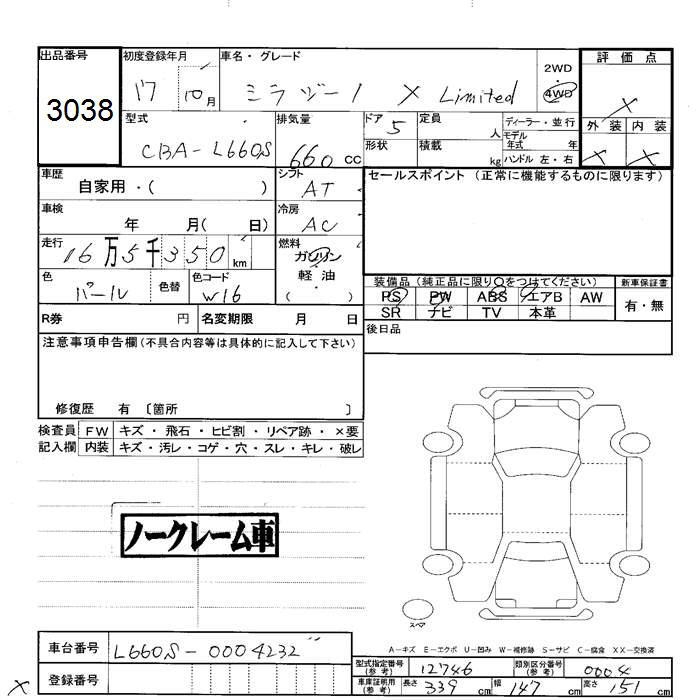 出品番号 初度登録年月 車名・グレード 2WD 評価点
3038 17 10月 ミラジーノ X Limited 4WD X
型式 排気量 ドア 5 定員 人 ディーラー・並行 外装 内装
モデル年式 年
CBA-L660S 660cc 形状 積載 kg ハンドル 左・右 X X
車歴 シフト セールスポイント(正常に機能するものに限ります)
自家用・( ) AT
車検 冷房
年 月( 日) AC
走行 16万5千350km 燃料 ガソリン・軽油 ( )
色 パール 色替 色コード W16
装備品(純正品に限り○をつけてください) 新車保証書
PS PW ABS エアB AW 有・無
SR ナビ TV 本革
R券 円 名変期限 月 日 後日品
注意事項申告欄(不具合内容等は具体的に記入して下さい)
修復歴 有 〔箇所 〕
検査員 FW キズ・飛石・ヒビ割・リペア跡・×要
記入欄 内装 キズ・汚レ・コゲ・穴・スレ・キレ・破レ
ノークレーム車
スペア
A-キズ E-エクボ U-凹み W-補修跡 S-サビ C-腐食 XX-交換済
車台番号 L660S-0004232
型式指定番号(参考) 12746 類別区分番号(参考) 0004
登録番号
車庫証明用(参考) 長さ 339cm 幅 147cm 高さ 151cm
X